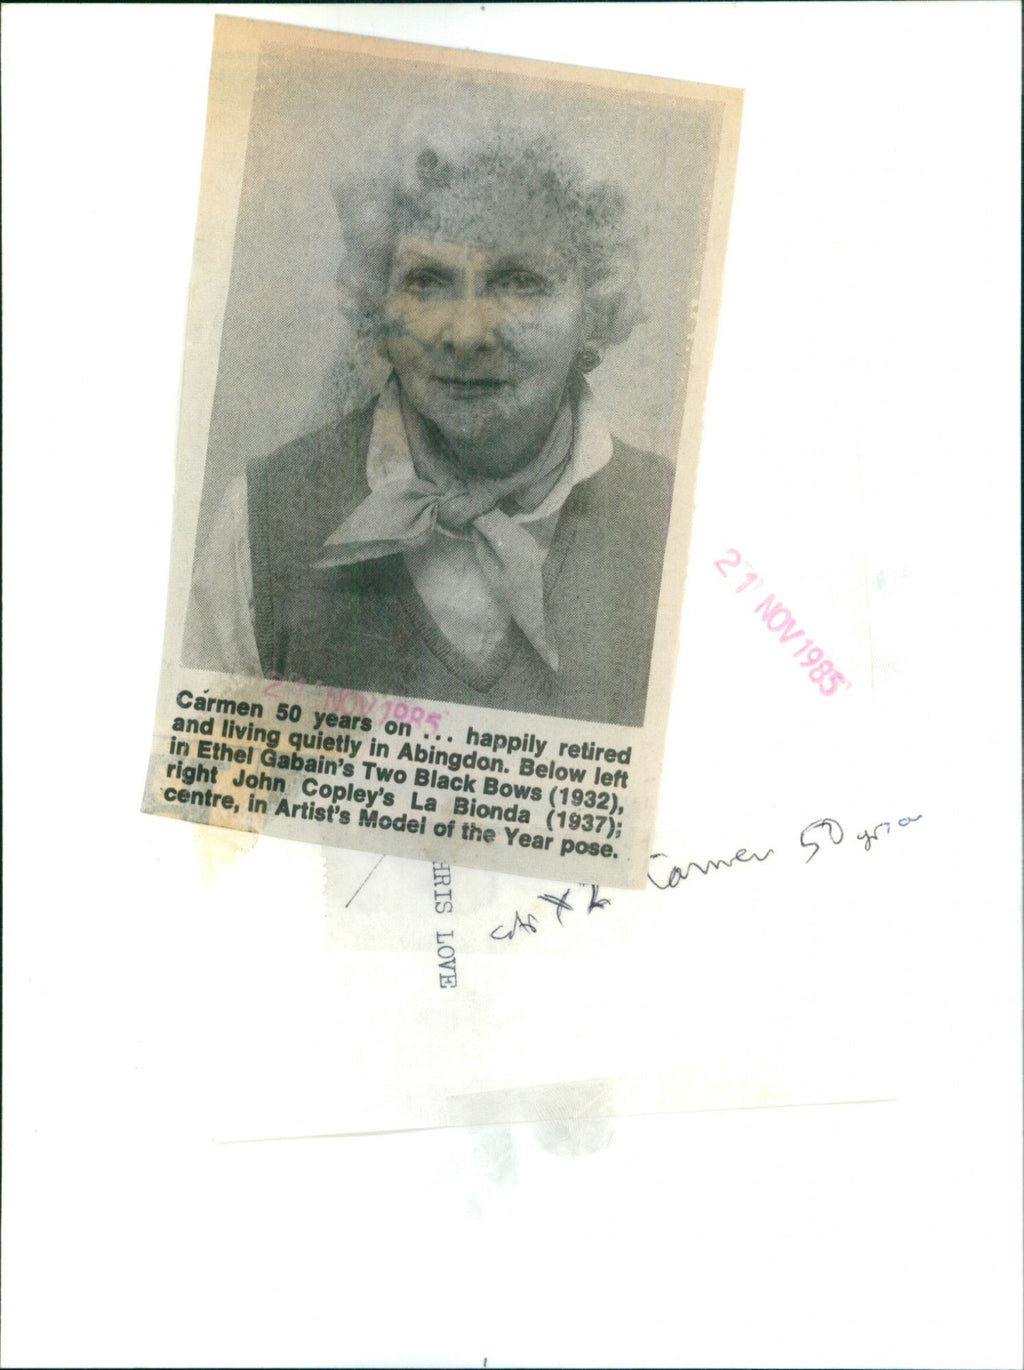 21 NOV 1985
21 NOV 1985
Carmen 50 years on ... happily retired
and living quietly in Abingdon. Below left
in Ethel Gabain's Two Black Bows (1932),
right John Copley's La Bionda (1937);
centre, in Artist's Model of the Year pose.
Carmen 50
HRIS LOVE